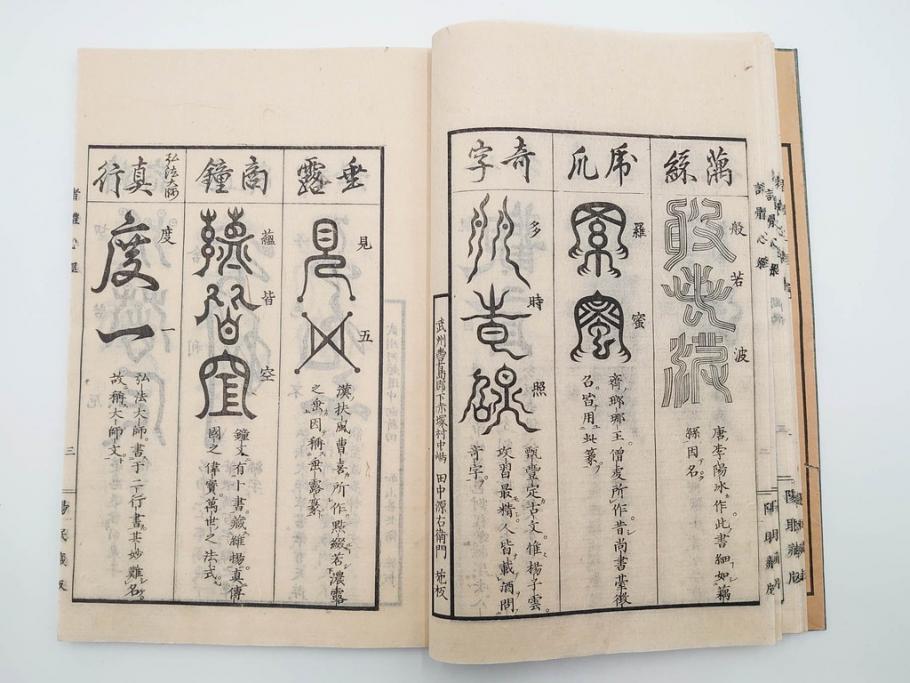 藕絲
般若波
般若波
唐李陽冰作此書細如藕
絲因名
虎爪
羅蜜
羅蜜
齊瑯琊王僧虔所作昔尚書臺徵
召皆用此篆
奇字
多時照
多時照
甄豐定古文惟楊子雲
攻習最精人皆載酒問
奇字
武州豊島郡下赤塚村中嶋 田中源右衛門 施板
垂露
見五
見五
漢扶風曹喜所作點綴若濃露
之垂因稱垂露篆
商鐘
蘊皆空
蘊皆空
鐘文有卜書藏維揚真傳
國之偉寶萬世之法式
真行
弘法大師
度一
度一
弘法大師書于二行書其妙難名
故稱大師文
三